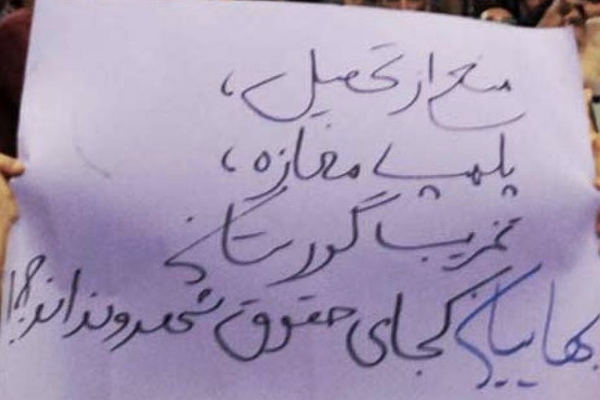 منع از تحصیل،
پلمپ مغازه،
تخریب گورستان
بهاییان کجای حقوق شهروندان؟!